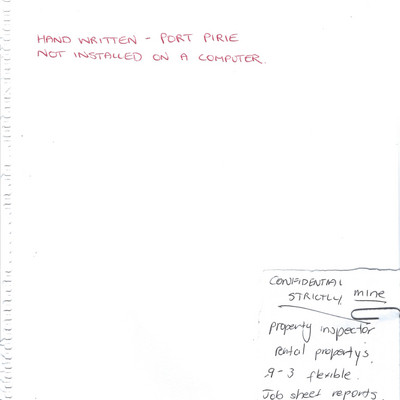 HAND WRITTEN - PORT PIRIE
NOT INSTALLED ON A COMPUTER.
CONFIDENTIAL
STRICTLY mine
property inspector
rental propertys.
9-3 flexible.
Job sheet reports